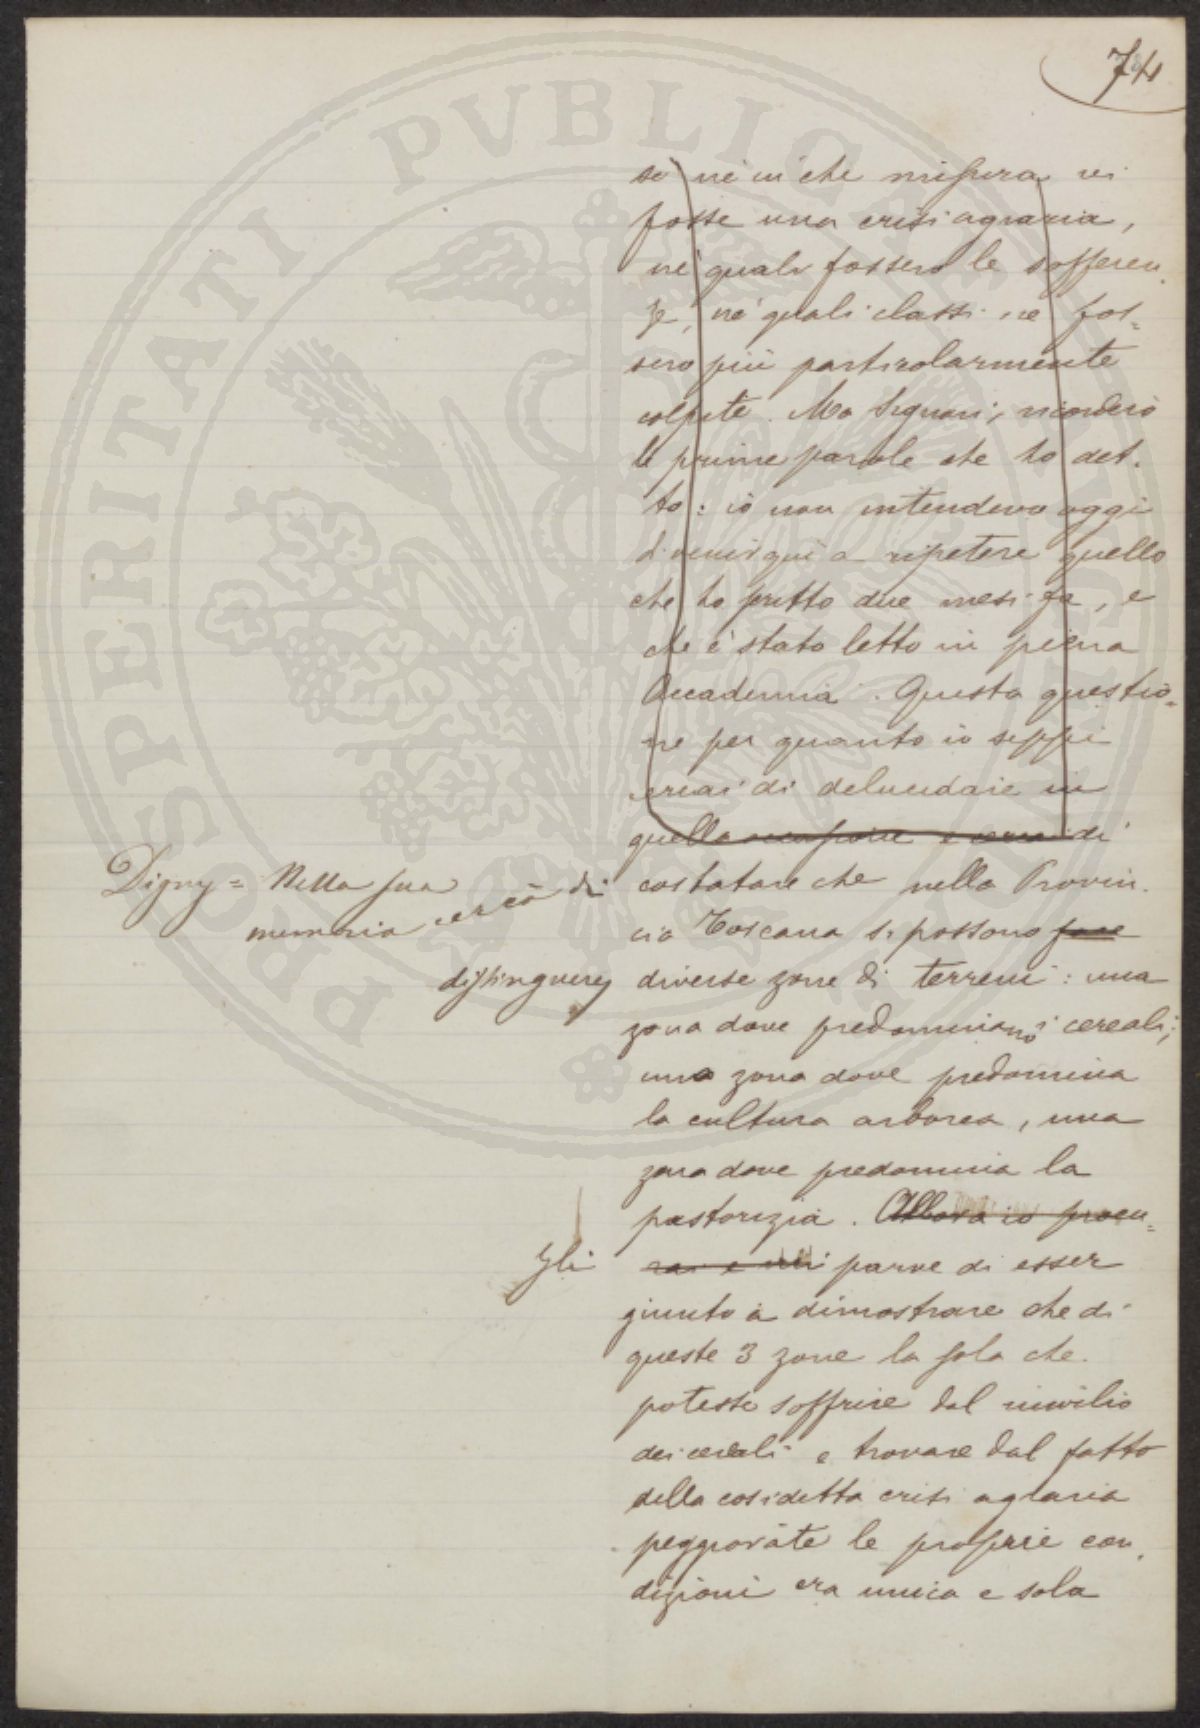 74
se nè in che misura vi
fosse una crisi agraria,
nè quali fossero le sofferen
ze, nè quali classi ne fos=
sero più particolarmente
colpite. Ma Signori, ricorderò
le prime parole che ho det.
to: io non intendevo oggi
di venir qui a ripetere quello
che ho scritto due mesi fa, e
che è stato letto in piena
Accademia. Questa questio=
ne per quanto io seppi
cercai di delucidare in
quella occasione e cercai di
Digny = Nella sua memoria cercò di
costatare che nella Provin.
cia Toscana si possono fare
distinguere
diverse zone di terreni: una
zona dove predominano i cereali;
una zona dove predomina
la cultura arborea, una
zona dove predomina la
pastorizia. Allora io procu=
Gli
rai e mi parve di esser
giunto a dimostrare che di
queste 3 zone la sola che
potesse soffrire dal rinvilio
dei cereali e trovare dal fatto
della cosidetta crisi agraria
peggiorate le proprie con
dizioni era unica e sola
PROSPERITATI PVBLICAE